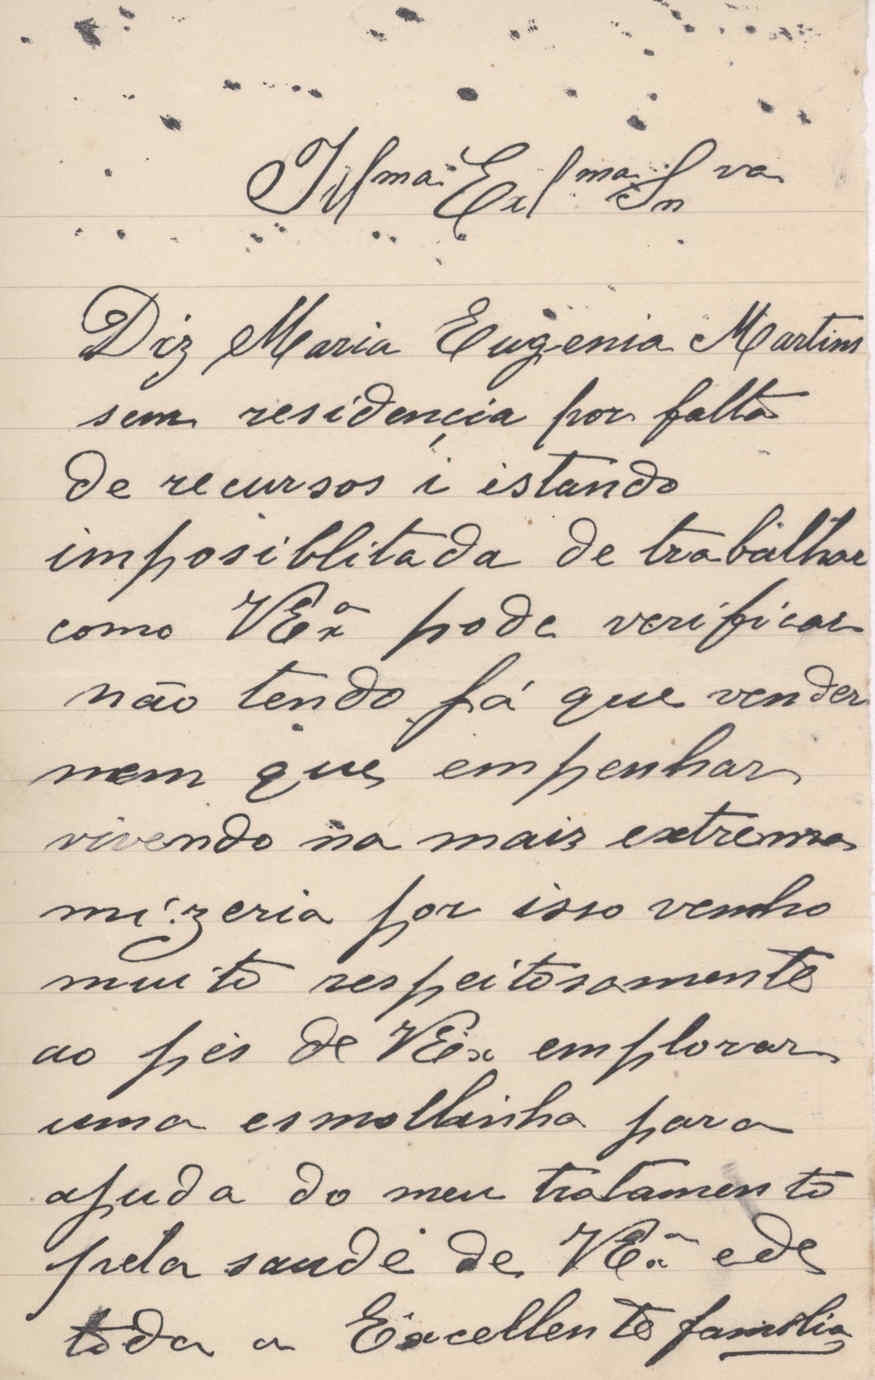 Illma Exlma Snra
Diz Maria Eugenia Martins
sem residencia por falta
de recursos i istando
imposiblitada de trabalhar
como VExa pode verificar
não tendo já que vender
nem que empenhar
vivendo na mais extrema
mizeria por isso venho
muito respeitosamente
ao pés de VEx emplorar
uma esmollinha para
ajuda do meu tratamento
pela saude de VExa e de
toda a Excellente familia